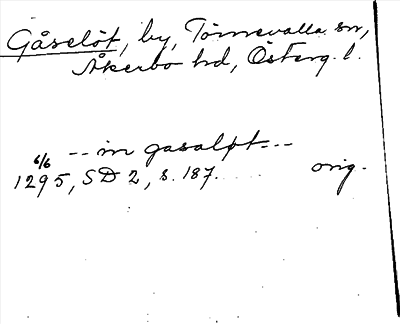 Gåselöt, by, Törnevalla sn,
Åkerbo hd, Österg. l.
-- in gasalpt ---
6/6
1295, SD 2, s. 187. orig.